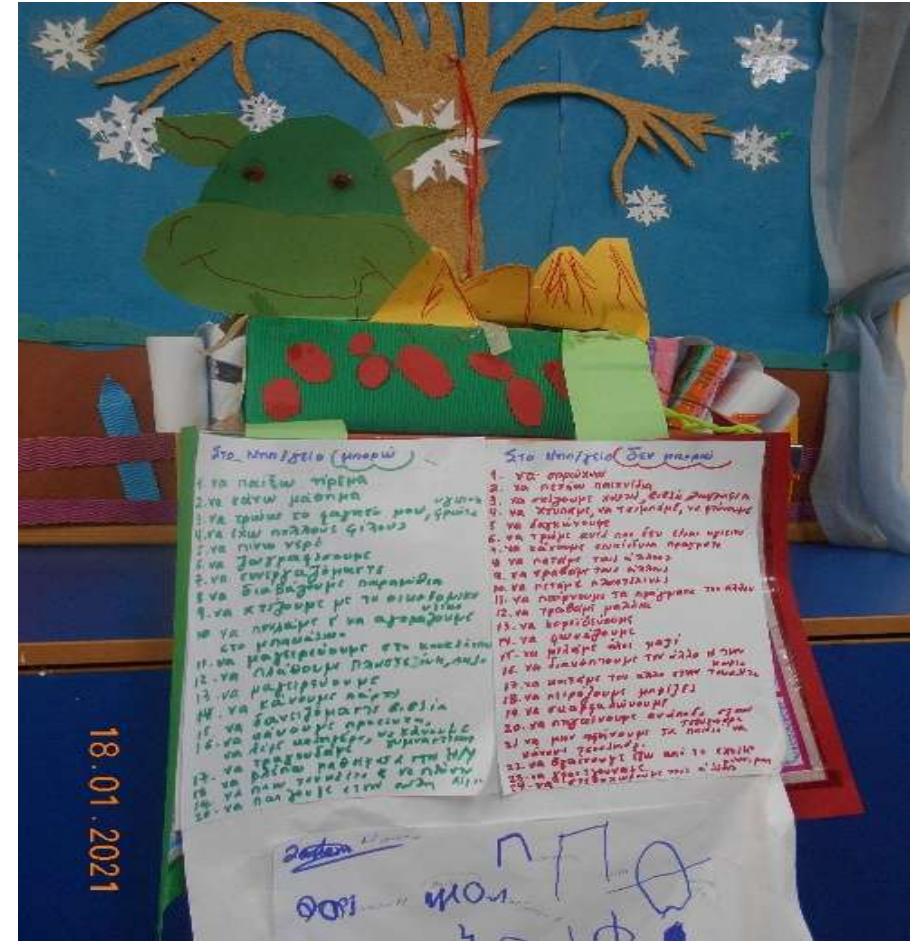 Στο Νηπ/γείο μπορώ
1. να παίξω ήρεμα
2. να κάνω μάθημα
3. να τρώω το φαγητό μου, φρούτα υγιεινά
4. να έχω πολλούς φίλους
5. να πίνω νερό
6. να ζωγραφίσουμε
7. να συνεργαζόμαστε
8. να διαβάζουμε παραμύθια
9. να χτίζουμε με το οικοδομικό υλικό
10. να πουλάμε ή να αγοράζουμε
στο μπακάλικο
11. να μαγειρεύουμε στο κουκλόσπιτο
12. να πλάθουμε πλαστελίνη,
13. να μαγειρεύουμε
14. να κάνουμε πάρτυ
15. να δανειζόμαστε βιβλία
16. να κάνουμε προσευχή,
να λέμε καλημέρα, να κάνουμε
να τραγουδάμε γυμναστική
17. να βλέπω μαθήματα στο Η/Υ
18. να πάω τουαλέτα & να πλένω
20. να παίζουμε στην αυλή
Στο Νηπ/γείο δεν μπορώ
1. να σπρώχνω
2. να πετάω παιχνίδια
3. να σκίζουμε χαρτιά, βιβλία, ζωγραφιές
4. να χτυπάμε, να τσιμπάμε, να φτύνουμε
5. να δαγκώνουμε
6. να τρώμε αυτά που δεν είναι υγιεινά
7. να κάνουμε επικίνδυνα πράγματα
8. να πατάμε τους άλλους
9. να τραβάμε τους άλλους
10. να πετάμε πλαστελίνες
11. να παίρνουμε τα πράγματα του άλλου
12. να τραβάμε μαλλιά
13. να κοροϊδεύουμε
14. να φωνάζουμε
15. να μιλάμε όλοι μαζί
16. να διακόπτουμε τον άλλο ή την κυρία
17. να κοιτάμε τον άλλο στην τουαλέτα
18. να πειράζουμε μπρίζες
19. να σκαρφαλώνουμε
20. να πηγαίνουμε ανάποδα στην τσουλήθρα
21. να μην αφήνουμε τα παιδιά να
κάνουν
22. να βγαίνουμε έξω από το σχολείο
24. να στενοχωρούμε τους άλλους
Π
18.01.2021